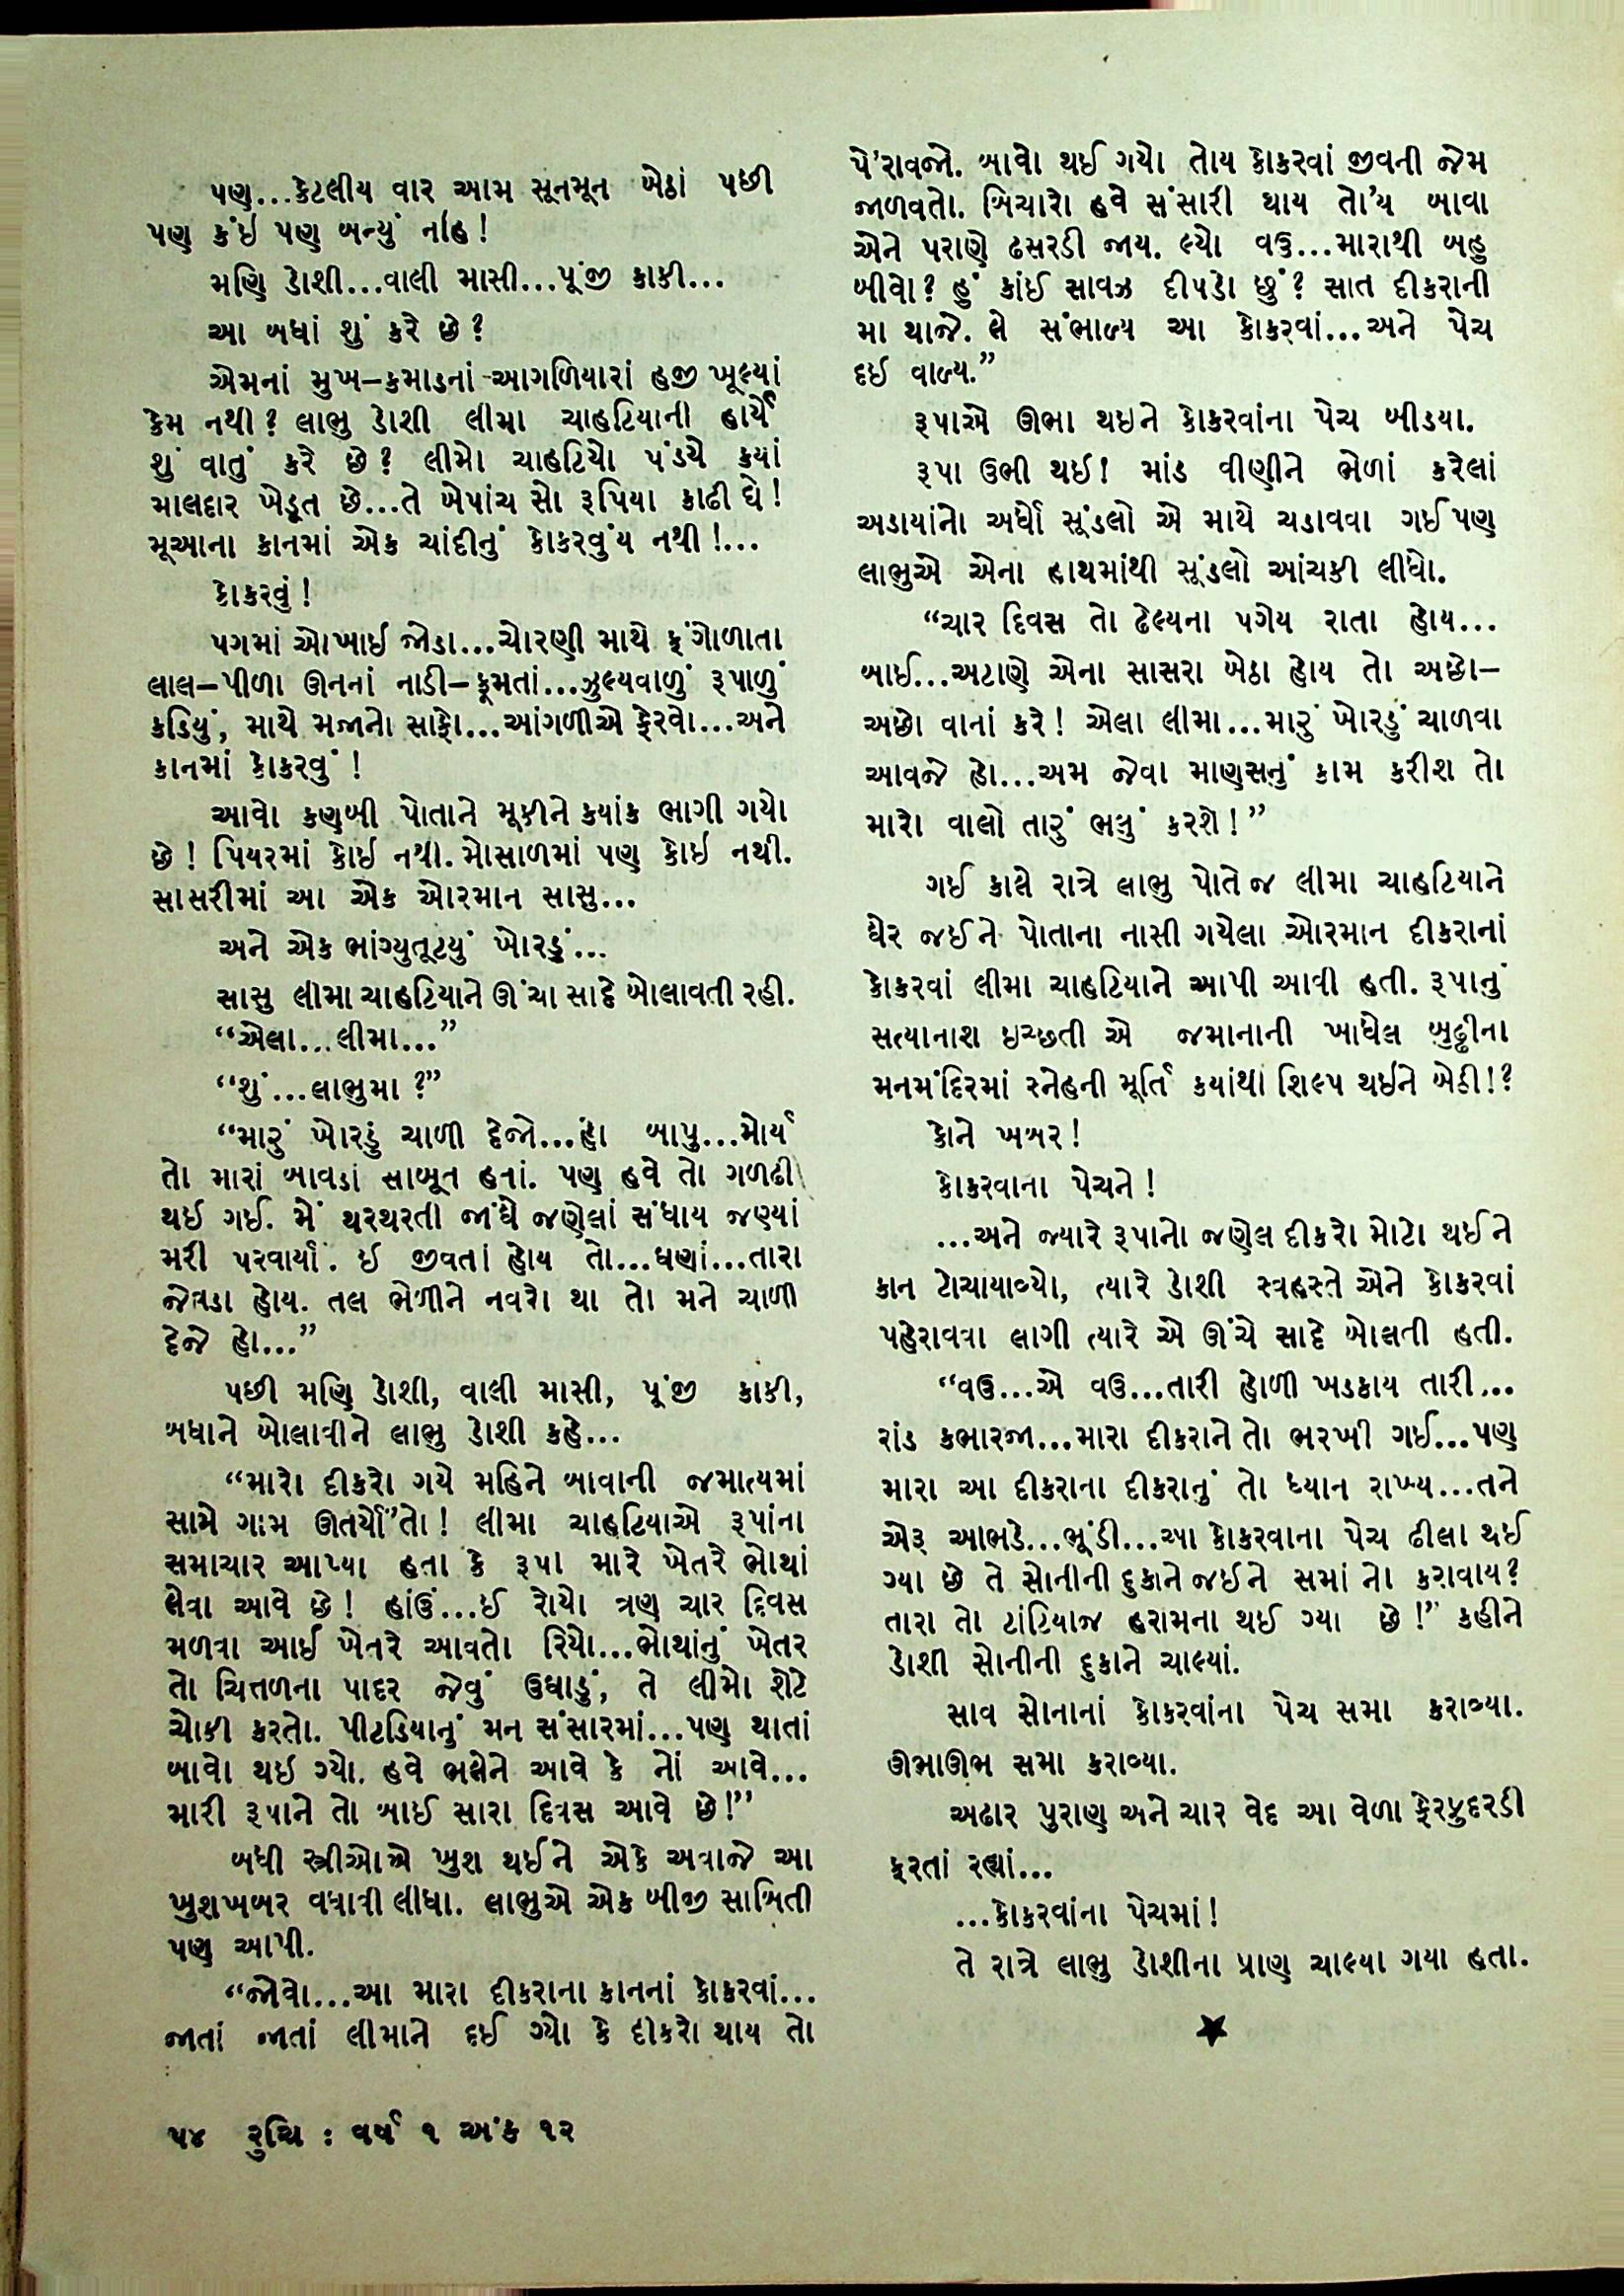 પણ...કેટલીય વાર આમ સૂનમૂન બેઠાં પછી
પણ કંઈ પણ બન્યું નહિ!
મણિ ડોશી...વાલી માસી...પૂંજી કાકી...
આ બધાં શું કરે છે?
એમનાં મુખ–કમાડનાં આગળિયારાં હજી ખૂલ્યાં
કેમ નથી? લાભુ ડોશી લીમા ચાહટિયાની હાર્યે
શું વાતું કરે છે? લીમો ચાહટિયો પંડયે કયાં
માલદાર ખેડૂત છે...તે બેપાંચ સો રૂપિયા કાઢી દ્યે!
મૂઆના કાનમાં એક ચાંદીનું કોકરવુંય નથી!...
કોકરવું!
પગમાં ઓખાઈ જોડા...ચોરણી માથે ફંગોળાતા
લાલ–પીળા ઊનનાં નાડી–ફૂમતાં...ઝુલ્યવાળું રૂપાળું
કડિયું, માથે મજાનો સાફો...આંગળીએ ફેરવો...અને
કાનમાં કોકરવું!
આવો કણબી પોતાને મૂકીને કયાંક ભાગી ગયો
છે! પિયરમાં કોઈ નથી. મોસાળમાં પણ કોઈ નથી.
સાસરીમાં આ એક ઓરમાન સાસુ...
અને એક ભાંગ્યુતૂટયું ખોરડું...
સાસુ લીમા ચાહટિયાને ઊંચા સાદે બોલાવતી રહી.
“એલા...લીમા...”
“શું...લાભુમા?”
“મારું ખોરડું ચાળી દેજો...હાં બાપુ...મોર્ય
તો મારાં બાવડાં સાબૂત હતાં. પણ હવે તો ગળઢી
થઈ ગઈ. મેં થરથરતી જાંઘે જણેલાં સંધાય જણ્યાં
મરી પરવાર્યાં. ઈ જીવતાં હોય તો...ઘણાં...તારા
જેવડા હોય. તલ ભેળીને નવરો થા તો મને ચાળી
દેજે હો...”
પછી મણિ ડોશી, વાલી માસી, પૂંજી કાકી,
બધાને બોલાવીને લાભુ ડોશી કહે...
“મારો દીકરો ગયે મહિને બાવાની જમાત્યમાં
સામે ગામ ઊતર્યો”તો! લીમા ચાહટિયાએ રૂપાંના
સમાચાર આપ્યા હતા કે રૂપા મારે ખેતરે ભોથાં
લેવા આવે છે! હાંઉં...ઈ રોયો ત્રણ ચાર દિવસ
મળવા આઈ ખેતરે આવતો રિયો...ભોથાંનું ખેતર
તો ચિત્તળના પાદર જેવું ઉઘાડું, તે લીમો શેઢે
ચોકી કરતો. પીટડિયાનું મન સંસારમાં...પણ થાતાં
બાવો થઈ ગ્યો. હવે ભલેને આવે કે નોં આવે...
મારી રૂપાને તો બાઈ સારા દિવસ આવે છે!”
બધી સ્ત્રીઓએ ખુશ થઈને એકે અવાજે આ
ખુશખબર વધાવી લીધા. લાભુએ એક બીજી સાબિતી
પણ આપી.
“જોવો...આ મારા દીકરાના કાનનાં કોકરવાં...
જાતાં જાતાં લીમાને દઈ ગ્યો કે દીકરો થાય તો
પે’રાવજો. બાવો થઈ ગયો તોય કોકરવાં જીવની જેમ
જાળવતો. બિચારો હવે સંસારી થાય તો’ય બાવા
એને પરાણે ઢસરડી જાય. લ્યો વઉ...મારાથી બહુ
બીવો? હું કાંઈ સાવઝ દીપડો છું? સાત દીકરાની
મા થાજે. લે સંભાળ્ય આ કોકરવાં...અને પેચ
દઈ વાળ્ય.”
રૂપાએ ઊભા થઇને કોકરવાંના પેચ બીડયા.
રૂપા ઉભી થઈ! માંડ વીણીને ભેળાં કરેલાં
અડાયાંનો અર્ધો સૂંડલો એ માથે ચડાવવા ગઈ પણ
લાભુએ એના હાથમાંથી સૂંડલો આંચકી લીધો.
“ચાર દિવસ તો ઢેલ્યના પગેય રાતા હોય...
બાઈ...અટાણે એના સાસરા બેઠા હોય તો અછો–
અછો વાનાં કરે! એલા લીમા...મારું ખોરડું ચાળવા
આવજે હો...અમ જેવા માણસનું કામ કરીશ તો
મારો વાલો તારું ભલું કરશે!”
ગઈ કાલે રાત્રે લાભુ પોતે જ લીમા ચાહટિયાને
ઘેર જઈને પોતાના નાસી ગયેલા ઓરમાન દીકરાનાં
કોકરવાં લીમા ચાહટિયાને આપી આવી હતી. રૂપાનું
સત્યાનાશ ઇચ્છતી એ જમાનાની ખાધેલ બુઢ્ઢીના
મનમંદિરમાં સ્નેહની મૂર્તિ કયાંથી શિલ્પ થઈને બેઠી!?
કોને ખબર!
કોકરવાના પેચને!
...અને જ્યારે રૂપાનો જણેલ દીકરો મોટો થઈને
કાન ટોચાયાવ્યો, ત્યારે ડોશી સ્વહસ્તે એને કોકરવાં
પહેરાવવા લાગી ત્યારે એ ઊંચે સાદે બોલતી હતી.
“વઉ...એ વઉ...તારી હોળી ખડકાય તારી...
રાંડ કભારજા...મારા દીકરાને તો ભરખી ગઈ...પણ
મારા આ દીકરાના દીકરાનું તો ધ્યાન રાખ્ય...તને
એરૂ આભડે...ભૂંડી...આ કોકરવાના પેચ ઢીલા થઈ
ગ્યા છે તે સોનીની દુકાને જઈને સમાં નો કરાવાય?
તારા તો ટાંટિયાજ હરામના થઈ ગ્યા છે!” કહીને
ડોશી સોનીની દુકાને ચાલ્યાં.
સાવ સોનાનાં કોકરવાંના પેચ સમા કરાવ્યા.
ઊભાઊભ સમા કરાવ્યા.
અઢાર પુરાણ અને ચાર વેદ આ વેળા ફેરફુદરડી
ફરતાં રહ્યાં...
...કોકરવાંના પેચમાં!
તે રાત્રે લાભુ ડોશીના પ્રાણ ચાલ્યા ગયા હતા.
૫૪ રુચિ : વર્ષ ૧ અંક ૧૨